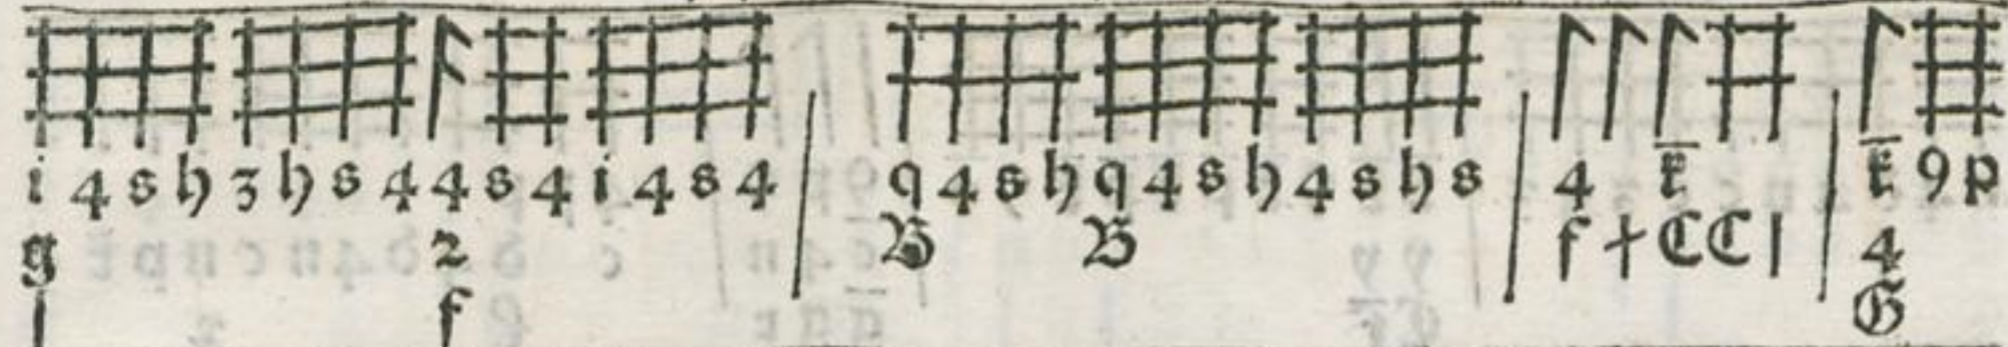 i 4 s h 3 h s 4 4 s 4 i 4 s 4 | q 4 s h q 4 s h 4 s h s | 4 k̅ | k̅ 9 p
g 2 B B f + C C | 4
| f G